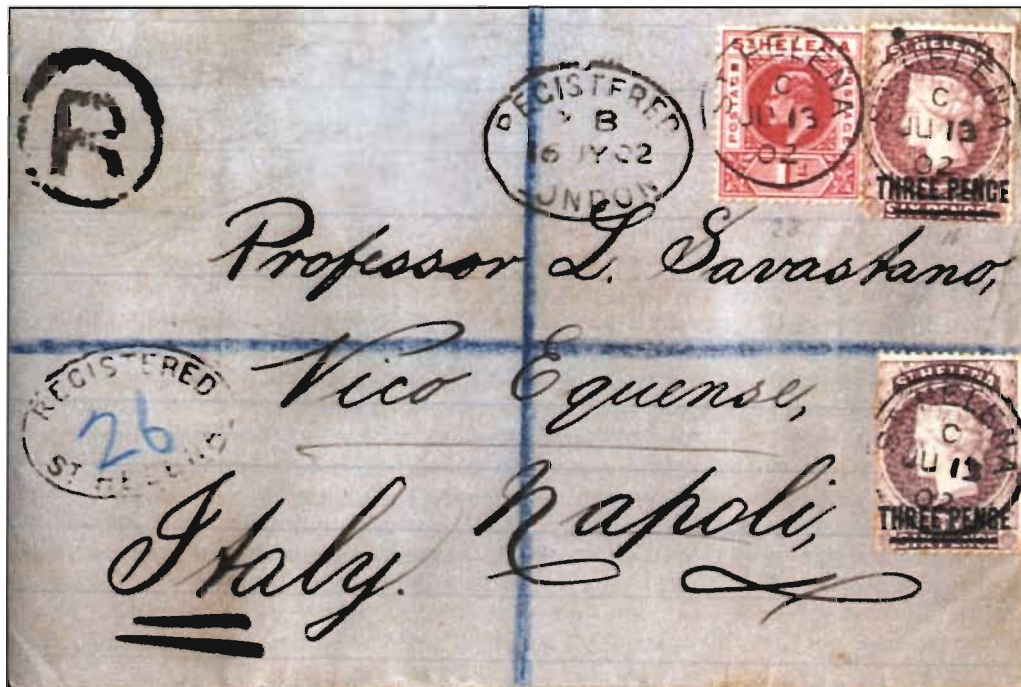 R
REGISTERED
B
16 JY 02
LONDON
ST HELENA
POSTAGE
1D
ST HELENA
C
JU 13
02
ST HELENA
ST HELENA
C
JU 13
02
THREE PENCE
28
16
Professor L. Savastano,
Vico Equense,
Napoli,
Italy.
REGISTERED
26
ST HELENA
ST HELENA
ST HELENA
C
JU 13
02
THREE PENCE